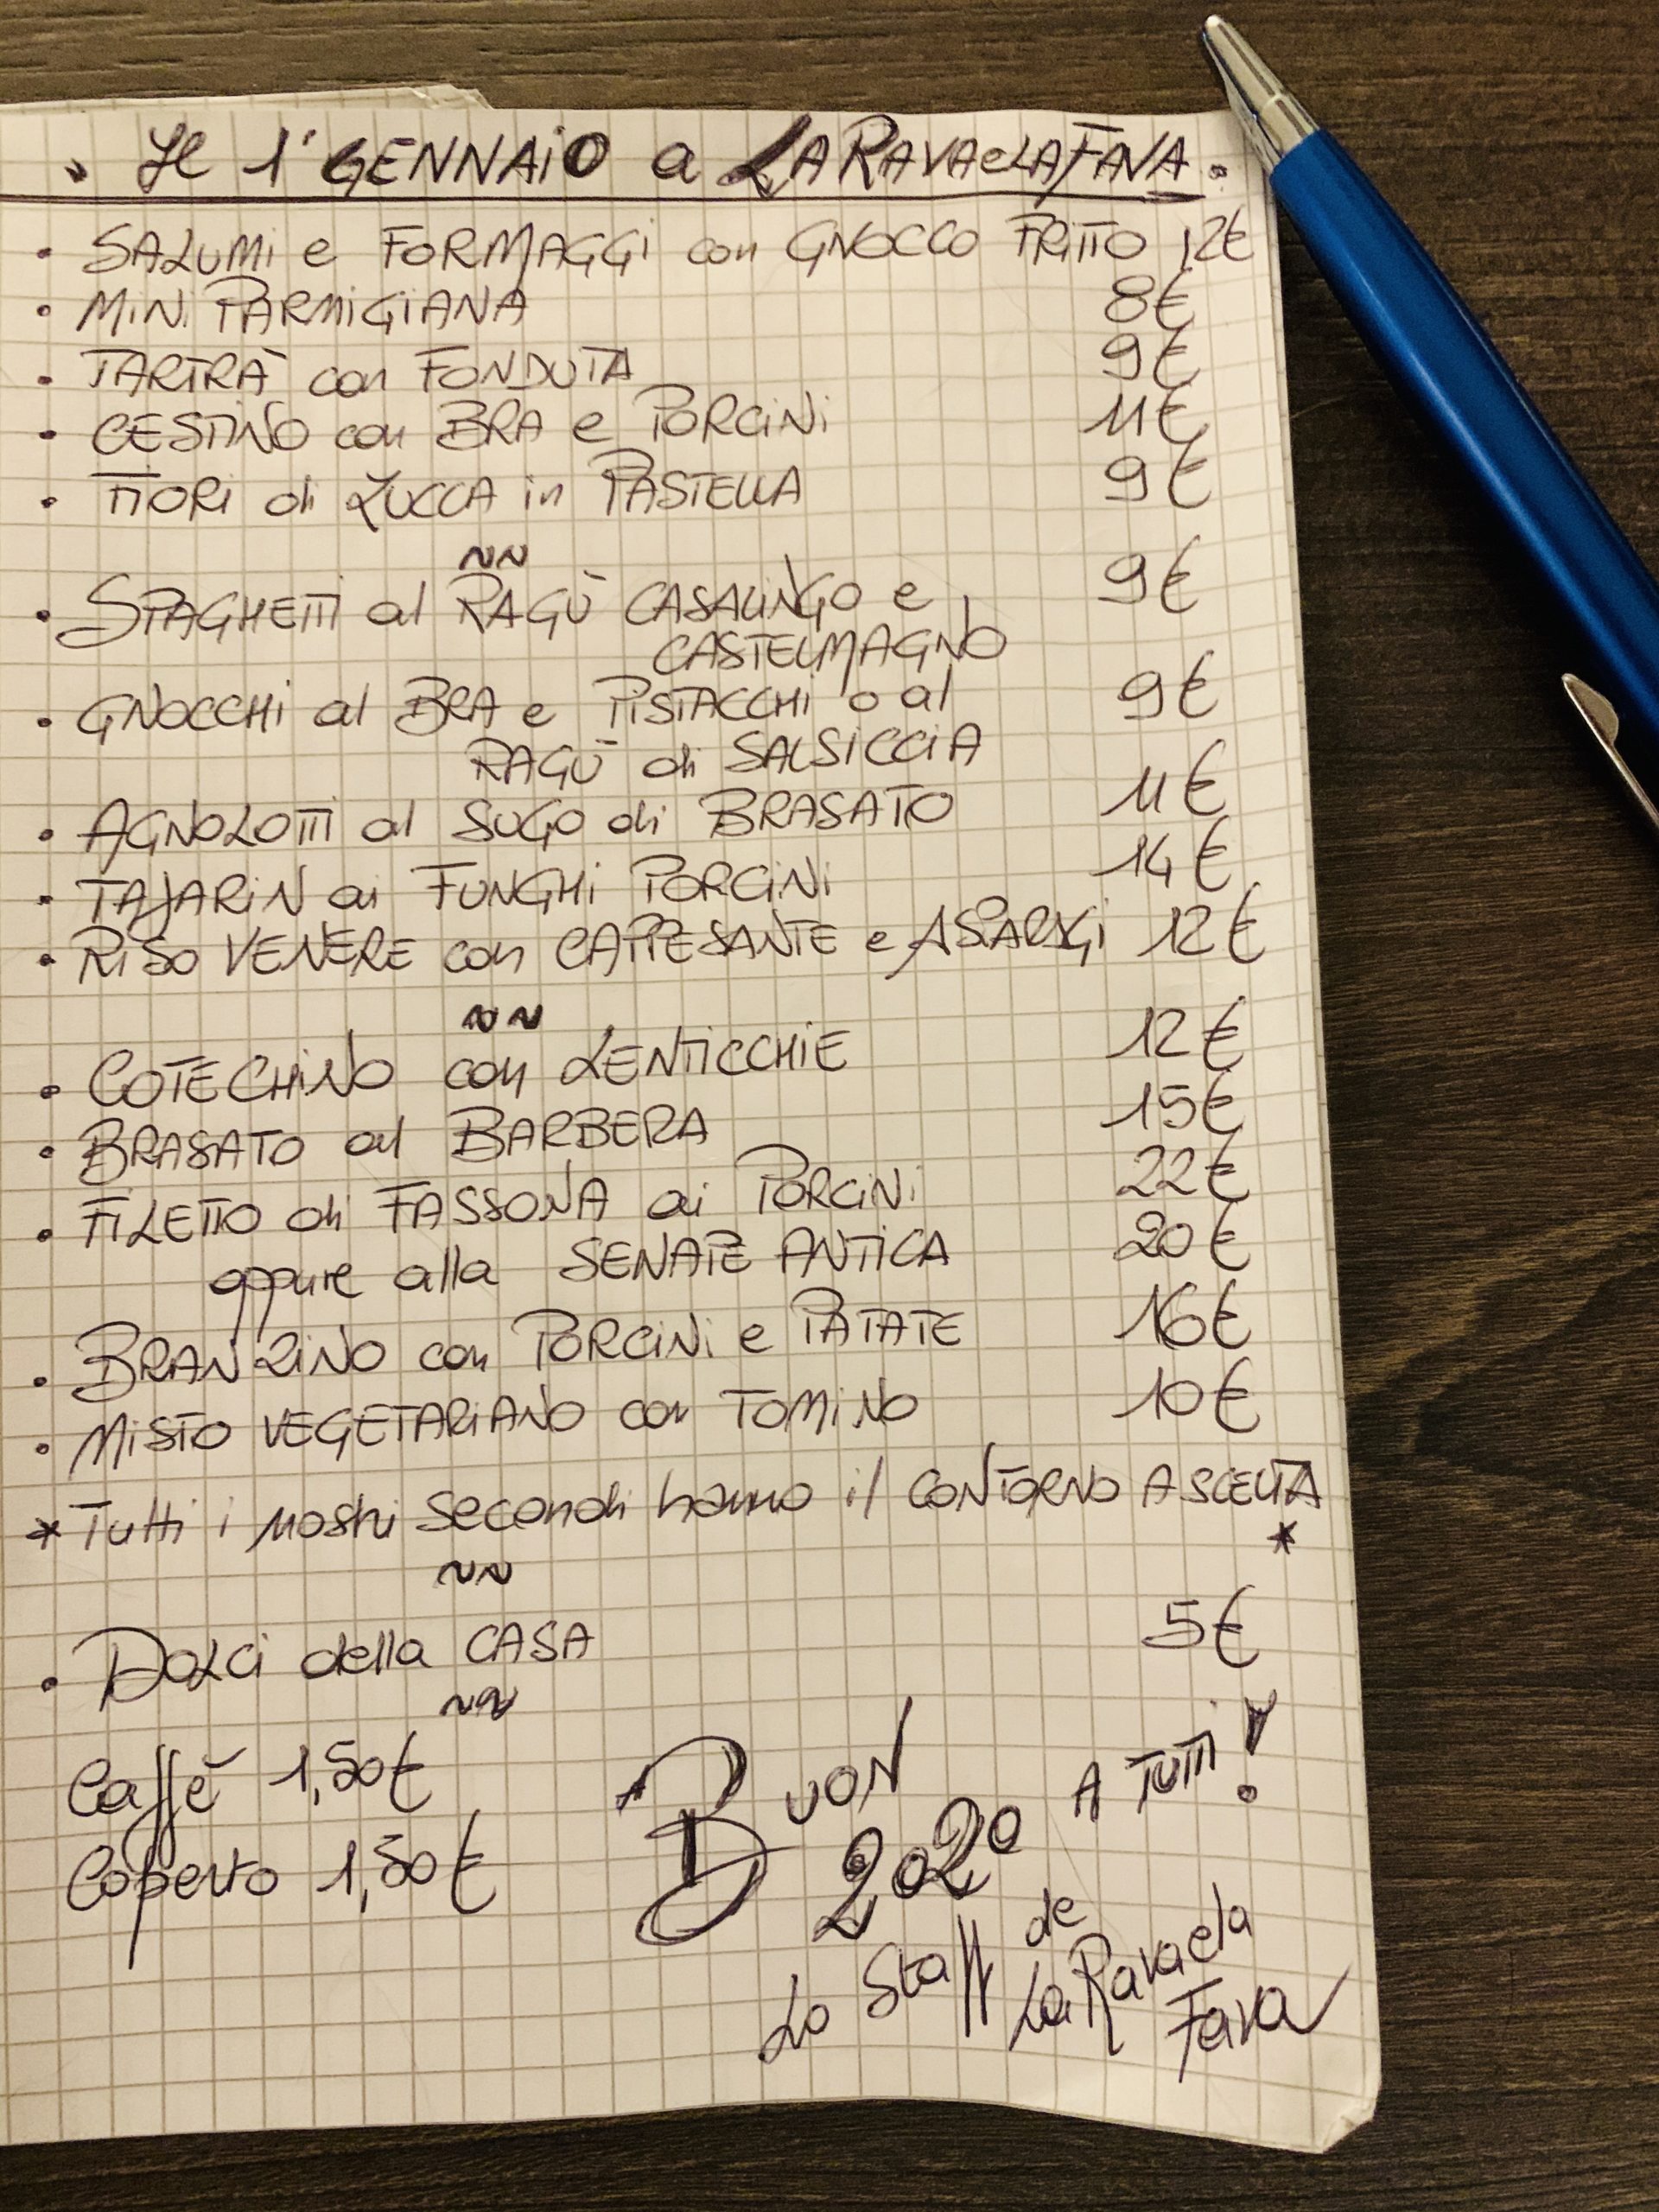 Il 1° GENNAIO a LA RAVA e LA FAVA.
• SALUMI e FORMAGGI con GNOCCO FRITTO 12€
• MINI PARMIGIANA 8€
• TARTRÀ con FONDUTA 9€
• CESTINO con BRA e PORCINI 11€
• FIORI di ZUCCA in PASTELLA 9€
~~
• SPAGHETTI al RAGÙ CASALINGO e 9€
CASTELMAGNO
• GNOCCHI al BRA e PISTACCHI o al 9€
RAGÙ di SALSICCIA
• AGNOLOTTI al SUGO di BRASATO 11€
• TAJARIN ai FUNGHI PORCINI 14€
• RISO VENERE con CAPPESANTE e ASPARAGI 12€
~~
• COTECHINO con LENTICCHIE 12€
• BRASATO al BARBERA 15€
• FILETTO di FASSONA ai PORCINI 22€
oppure alla SENAPE ANTICA 20€
• BRANZINO con PORCINI e PATATE 16€
• MISTO VEGETARIANO con TOMINO 10€
* Tutti i nostri secondi hanno il CONTORNO A SCELTA *
~~
• DOLCI della CASA 5€
~~
Caffè 1,50€
Coperto 1,50€
BUON 2020 A TUTTI!
Lo Staff de
La Rava e la
Fava